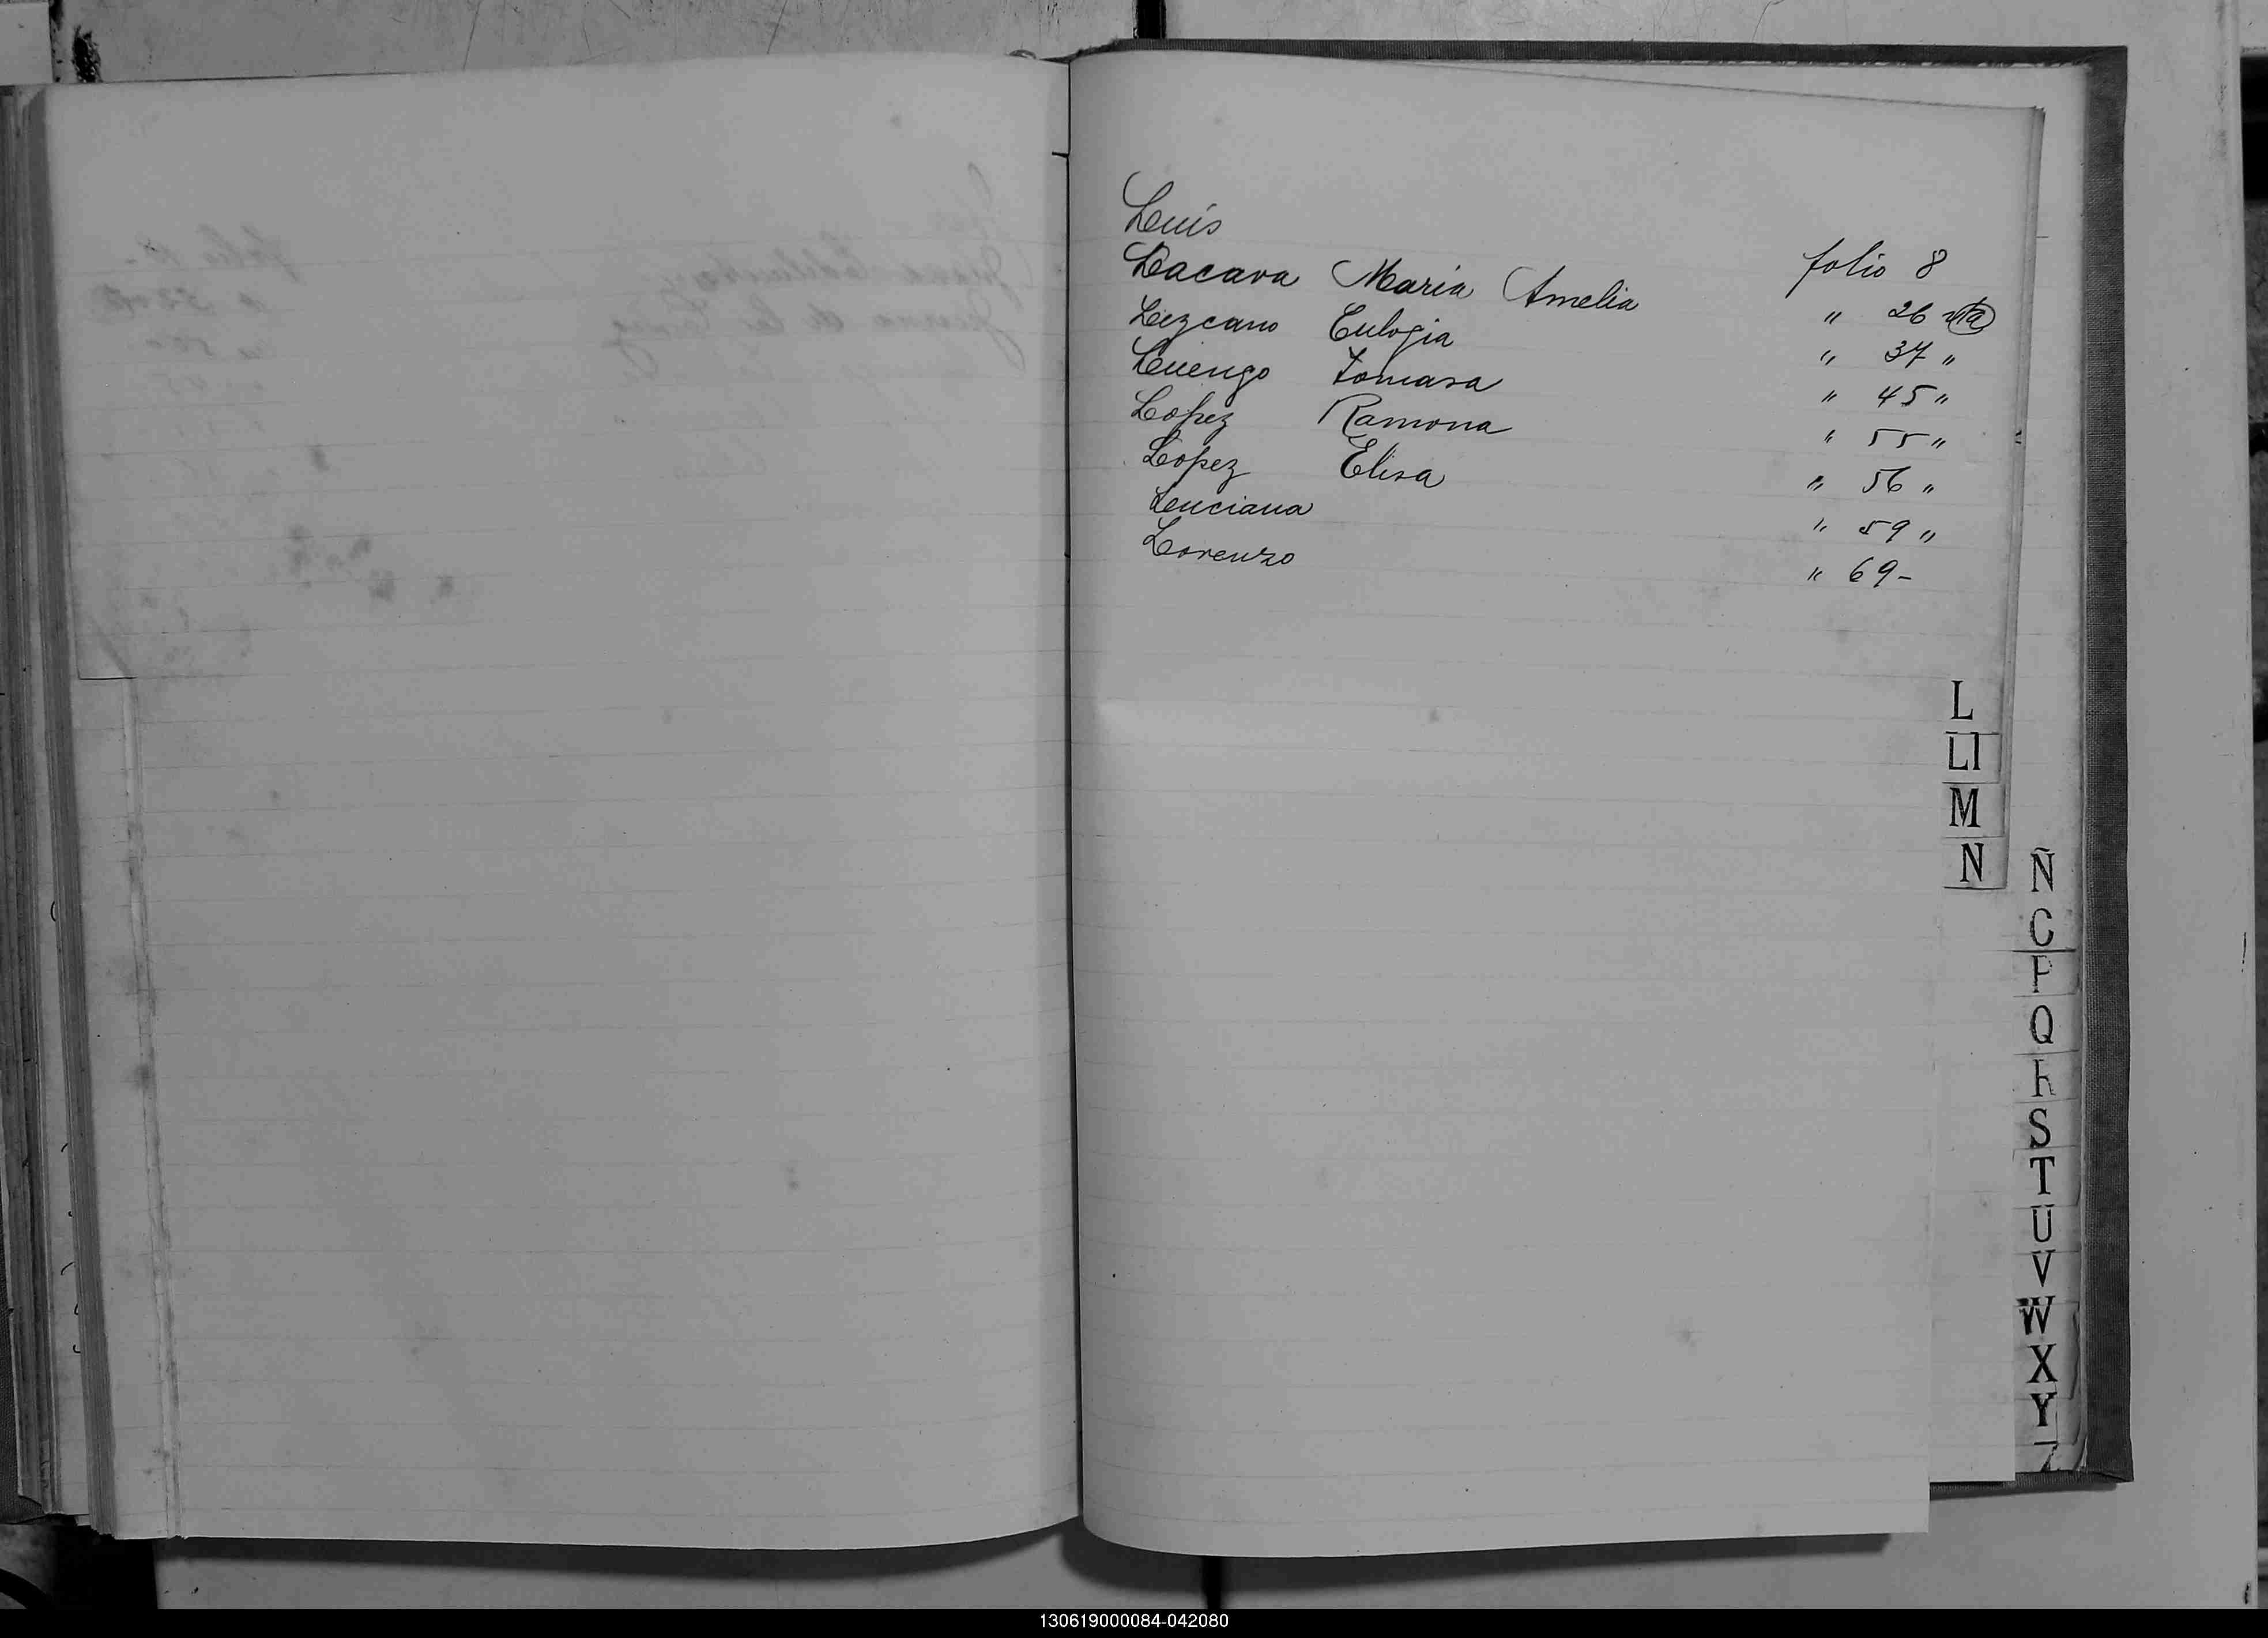 Luis folio 8
Lacava Maria Amelia " 26 vta
Lezcano Eulogia " 37 "
Luengo Tomasa " 45 "
Lopez Ramona " 55 "
Lopez Elisa " 56 "
Luciana " 59 "
Lorenzo " 69 -
L
Ll
M
N
Ñ
O
P
Q
R
S
T
U
V
W
X
Y
Z
130619000084-042080